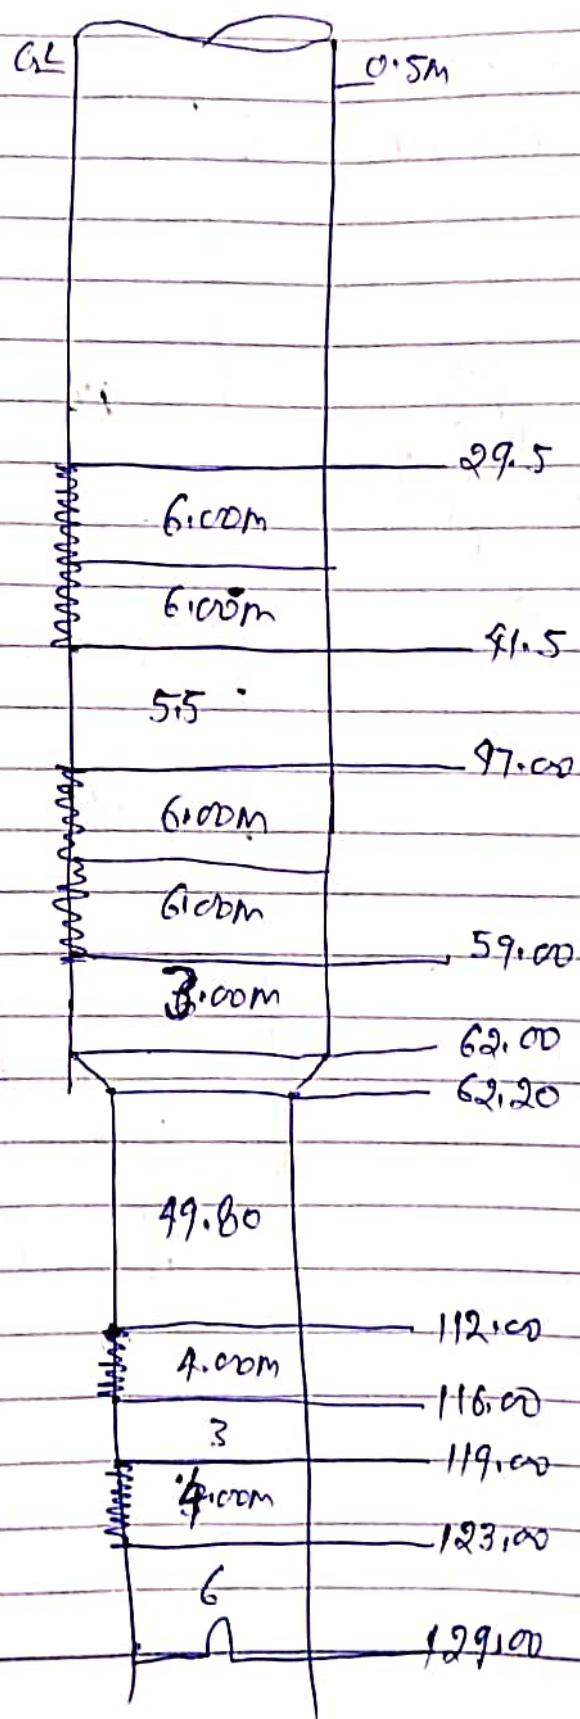 GL
0.5m
29.5
6.00m
6.00m
41.5
5.5
47.00
6.00m
6.00m
59.00
3.00m
62.00
62.20
49.80
112.00
4.00m
116.00
3
119.00
4.00m
123.00
6
129.00